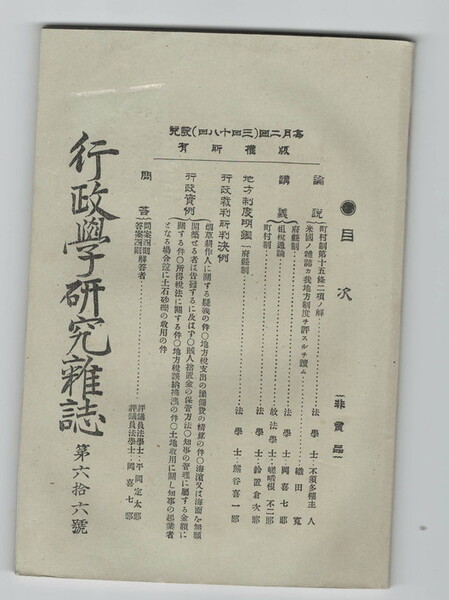 毎月二回(三四十八四)發兌
版權所有
●目次
―非賣品―
論説
町村制第十五條二項ノ解……法學士 不須多樓主人
米國ノ雜誌カ我地方制度ヲ評スルヲ讀ム……織田寛
講義
府縣制……法學士 岡喜七郎
租税通論……故法學士 嵯峨根不二郎
町村制……法學士 鈴置倉次郎
地方制度明鑑 府縣制……法學士 熊谷喜一郎
行政裁判所判決例
行政實例
問答
問案四則解答者 評議員法學士 平岡定太郎
答案四則 評議員法學士 岡喜七郎
行政學研究雜誌
第六拾六號